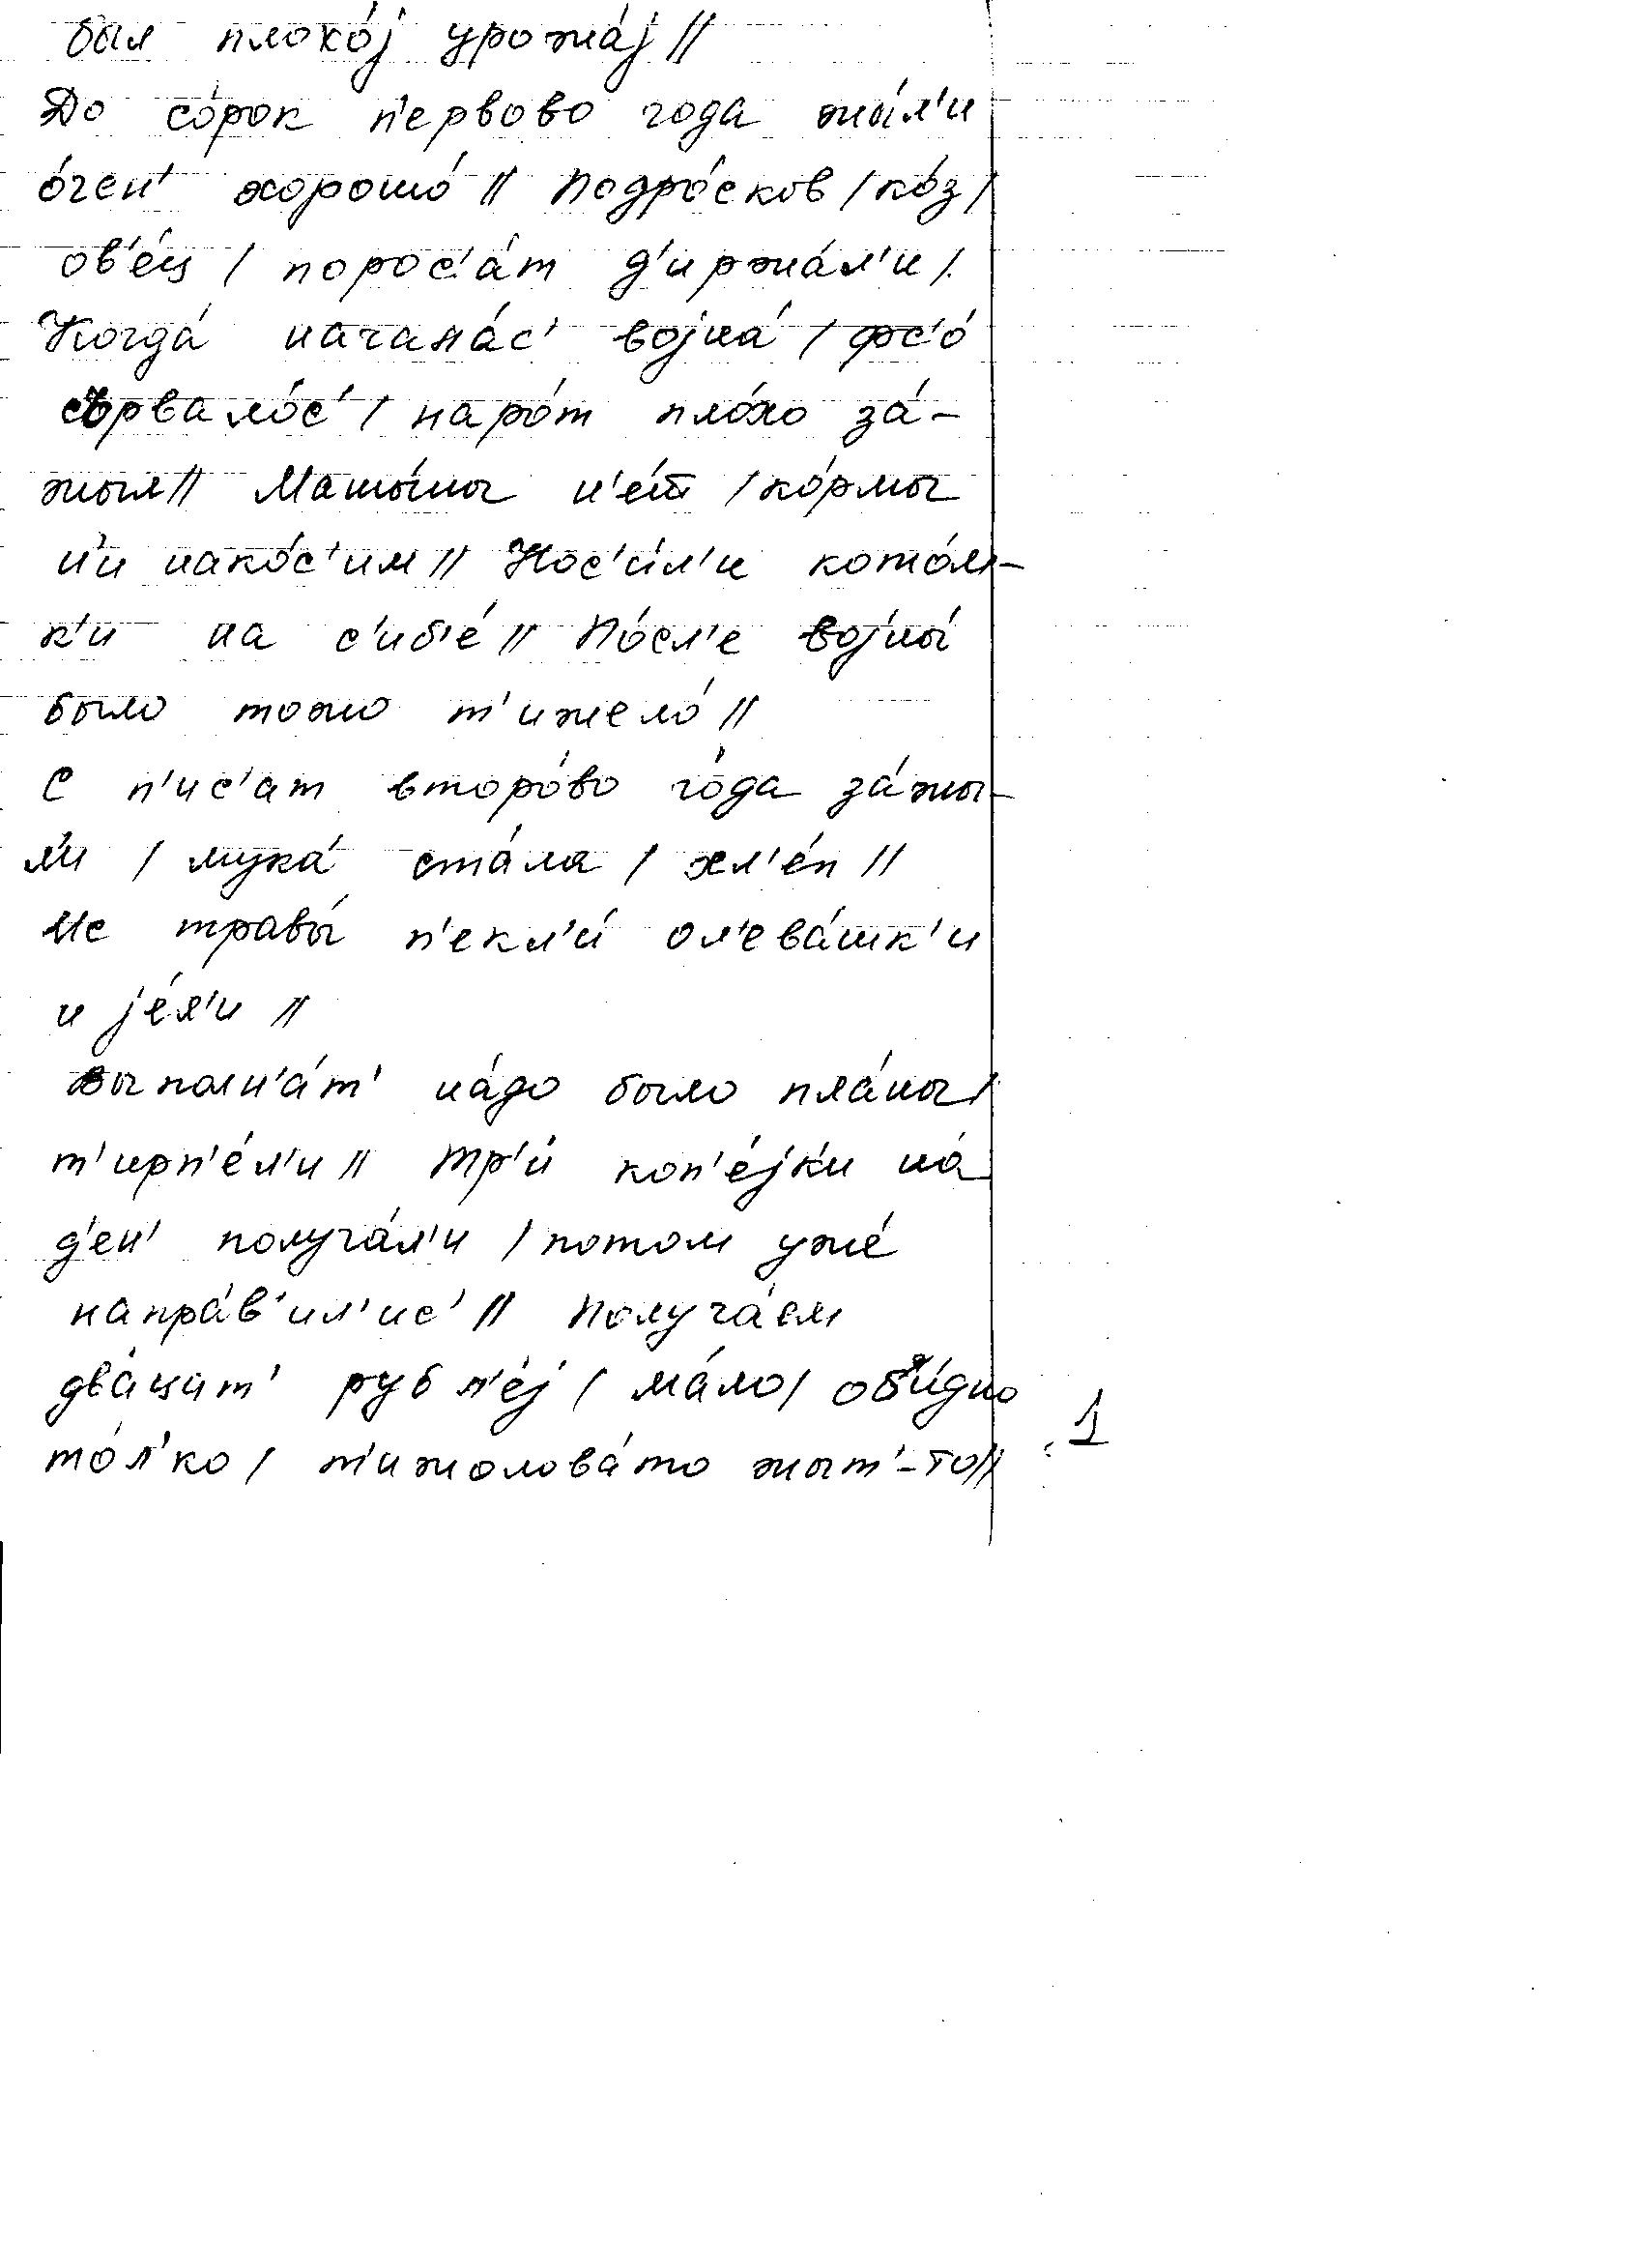 был плохо́ј урожа́ј //
До со́рок п'ервово года жы́л'и
о́чен' хорошо́ // Подро́сков / ко́з /
ов'е́ц / порос'а́т д'иржа́л'и /.
Когда́ начала́с' војна́ / фс'о́
сорвало́с' / наро́т пло́хо за́-
жыл // Машы́ны н'е́т / ко́рмы
н'и нако́с'им // Нос'и́л'и кото́м-
к'и на с'иб'е́ // По́сл'е војны́
было тожо т'ижело́ //
С п'ис'ат второ́во го́да за́жы-
л'и / мука́ ста́ла / хл'е́п //
Ис травы́ п'екл'и́ ол'ева́шк'и
и је́л'и //
Выполн'а́т' на́до было пла́ны /
т'ирп'е́л'и // Тр'и́ коп'е́јк'и на́
д'ен' получа́л'и / потом уже́
напра́в'ил'ис' // Получа́ем
два́цат' рубл'е́ј / ма́ло / об'и́дно
то́л'ко / т'ижолова́то жыт'-то //
1